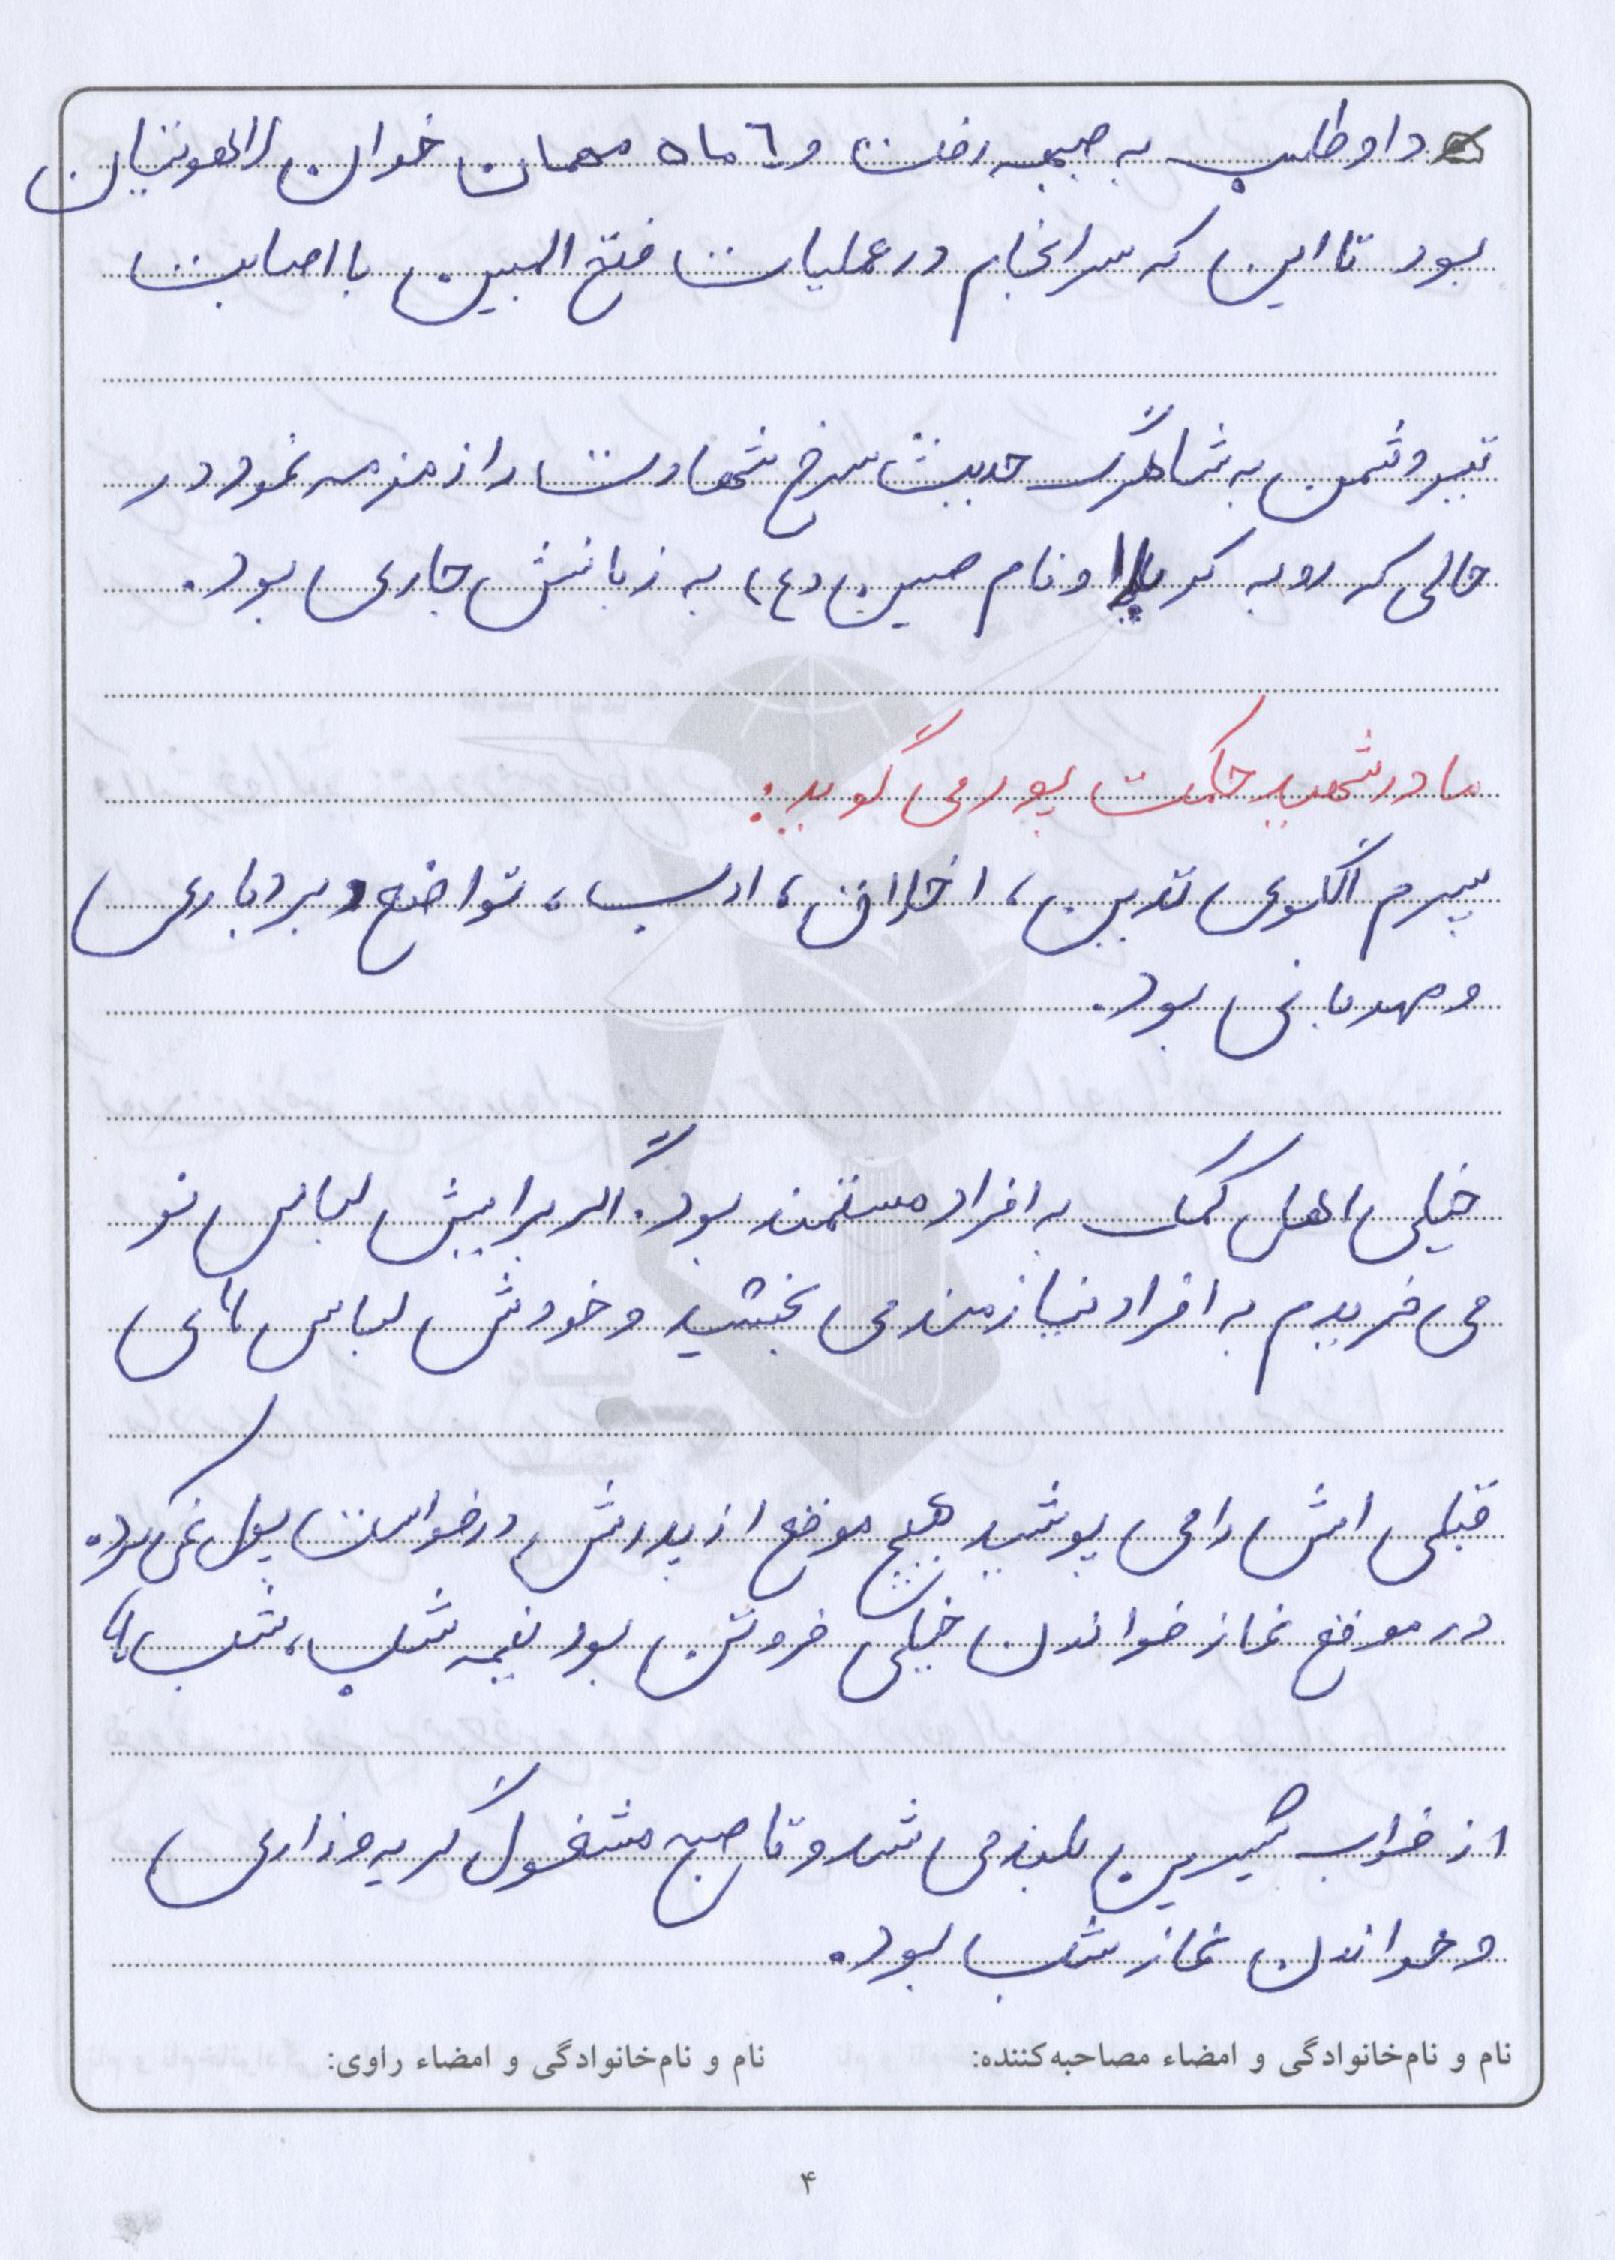 داوطلب به جبهه رفت و ٦ ماه مهمان خوان لاهوتیان
بود تا این که سرانجام در عملیات فتح المبین با اصابت
تیر دشمن به شاهرگ حدیث سرخ شهادت را زمزمه نمود در
حالی که رو به کربلا و نام حسین (ع) به زبانش جاری بود.
مادر شهید حکمت پور می گوید:
پسرم الگوی تدین، اخلاق، ادب، تواضع و بردباری
و مهربانی بود.
خیلی اهل کمک به افراد مستمند بود. اگر برایش لباس نو
می خریدم به افراد نیازمند می بخشید و خودش لباس های
قبلی اش را می پوشید هیچ موقع از پدرش درخواست پول نمی کرد.
در موقع نماز خواندن خیلی فروتن بود نیمه شب، شب ها
از خواب شیرین بلند می شد و تا صبح مشغول گریه و زاری
و خواندن نماز شب بود.
نام و نام‌خانوادگی و امضاء مصاحبه‌کننده: نام و نام‌خانوادگی و امضاء راوی:
۴